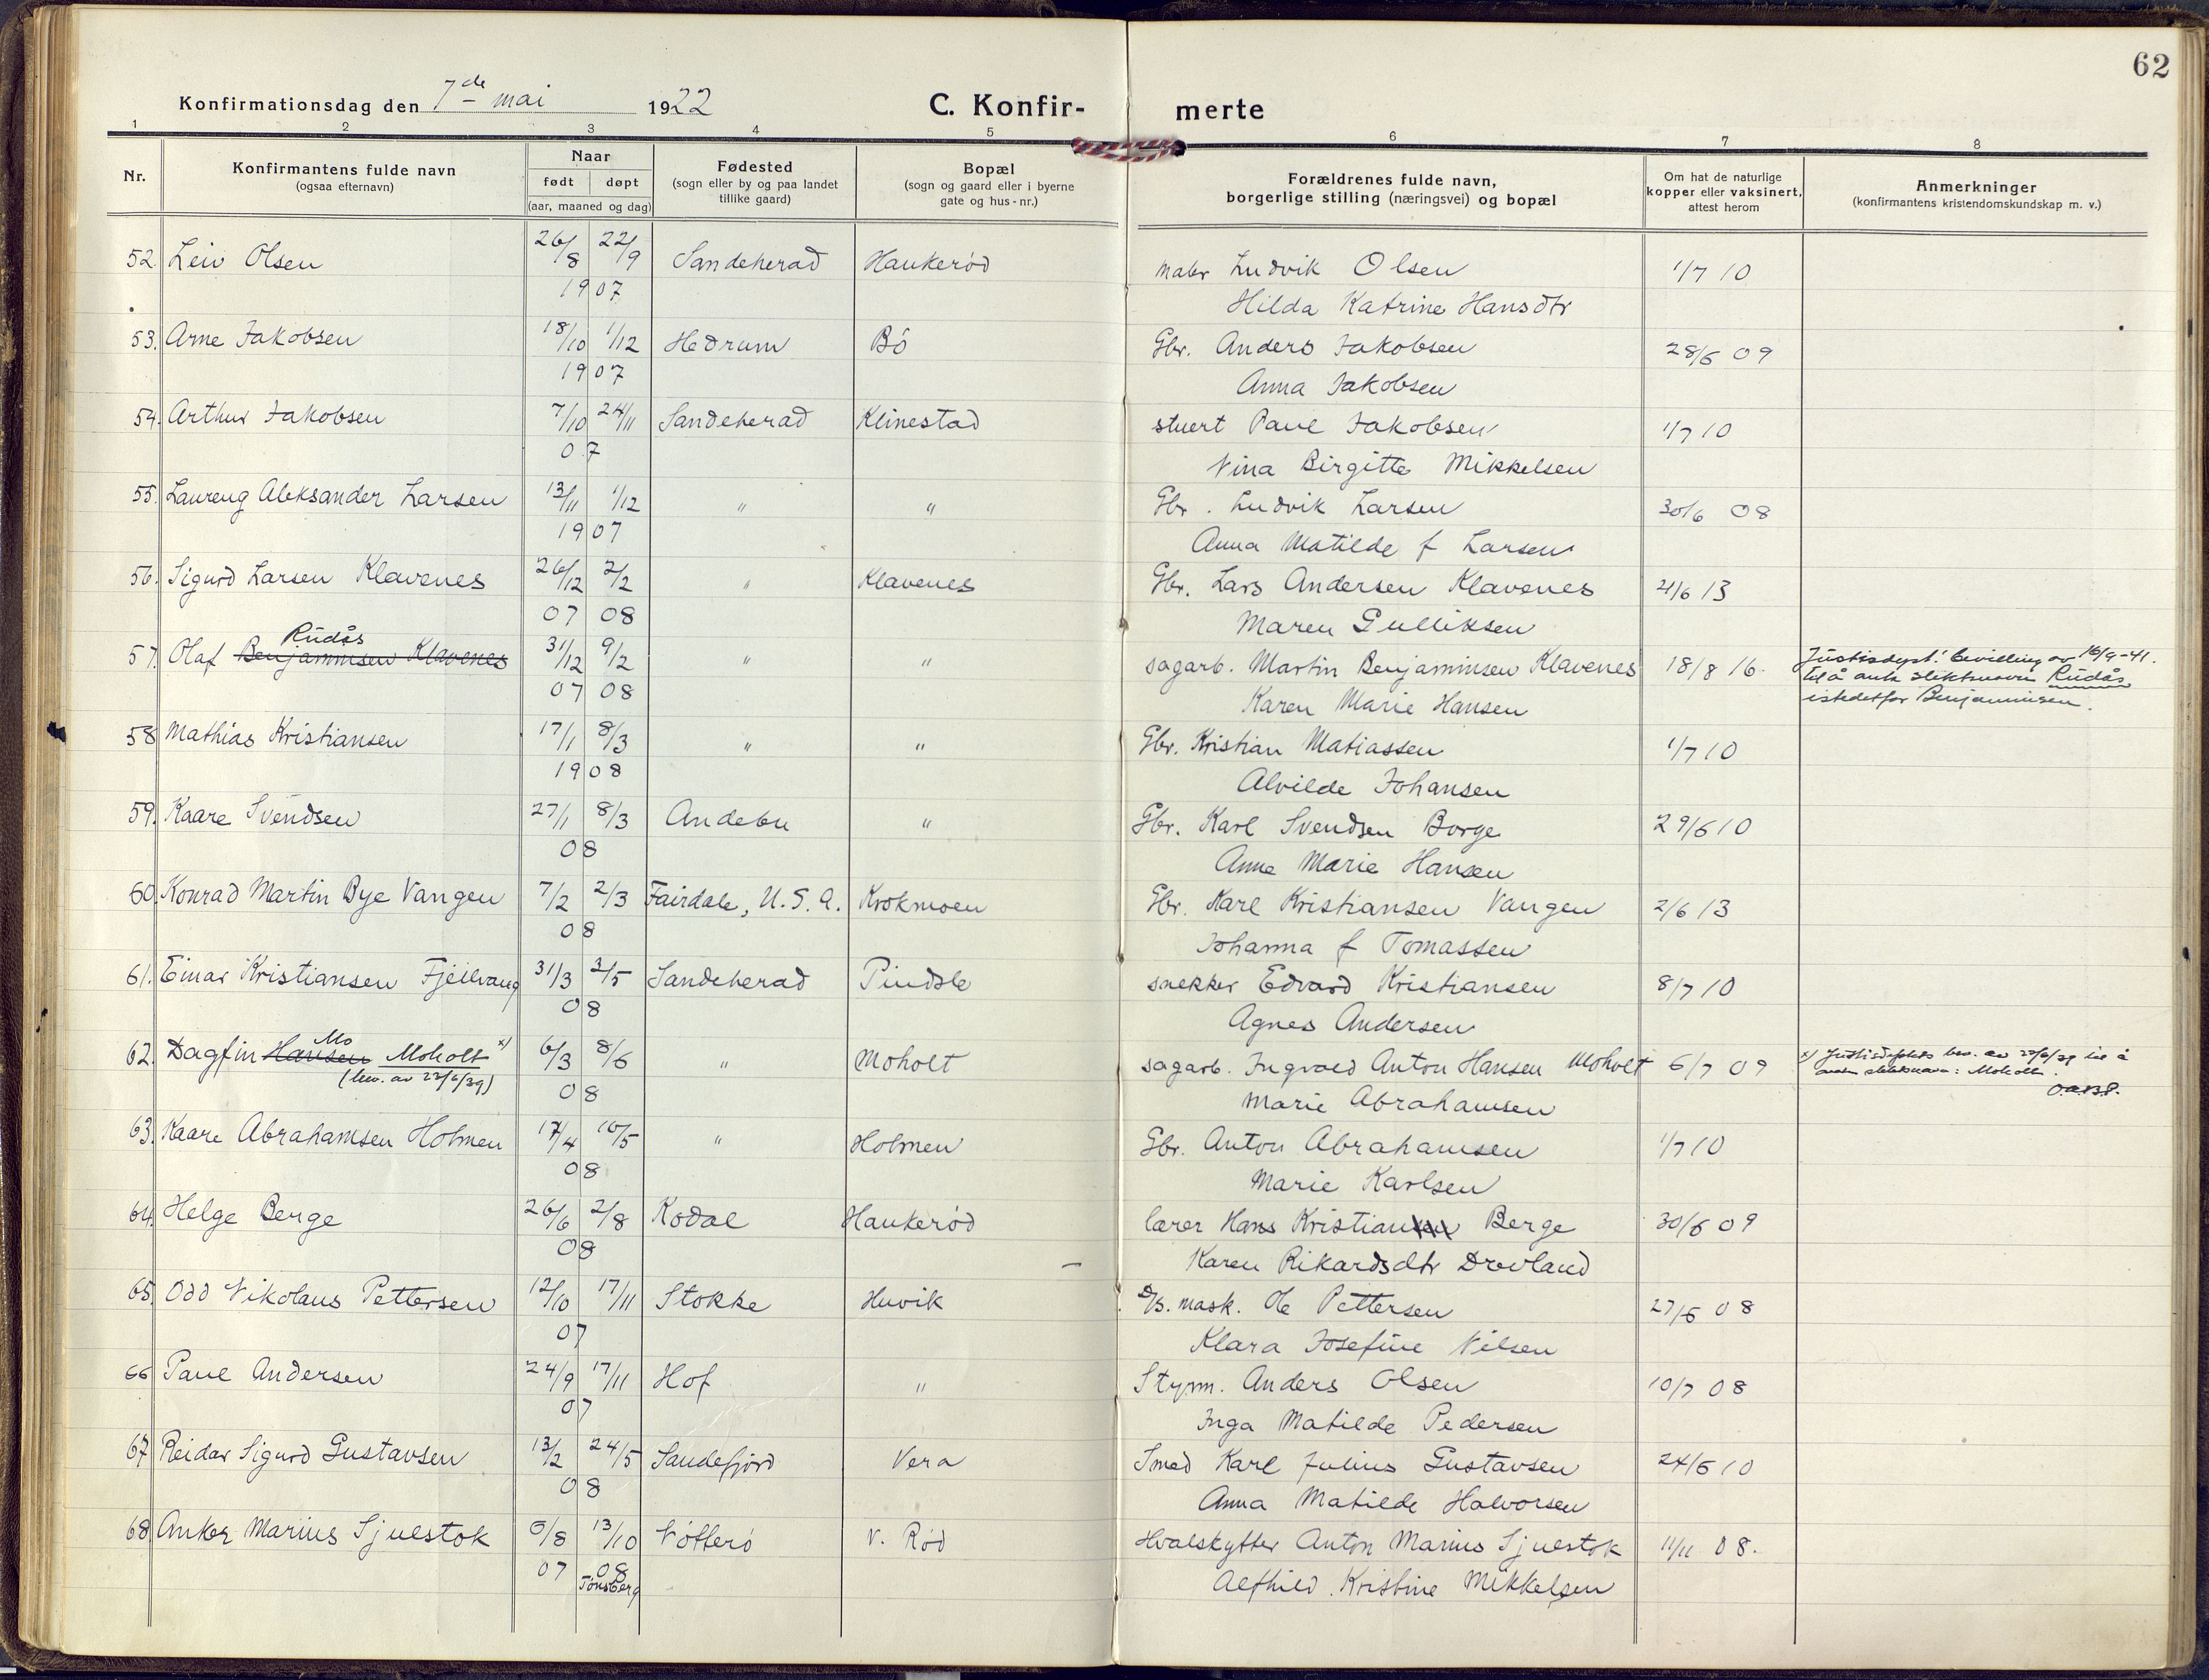 62
Konfirmationsdag den 7de mai 1922 C. Konfirmerte
1 2 3 4 5 6 7 8
Nr. Konfirmantens fulde navn (ogsaa efternavn) Naar født døpt (aar, maaned og dag) Fødested (sogn eller by og paa landet tillike gaard) Bopæl (sogn og gaard eller i byerne gate og hus-nr.) Forældrenes fulde navn, borgerlige stilling (næringsvei) og bopæl Om hat de naturlige kopper eller vaksinert, attest herom Anmerkninger (konfirmantens kristendomskundskap m. v.)
52. Leiv Olsen 26/8 22/9 Sandeherad Haukerød maler Ludvik Olsen 1/7 10
1907 Hilda Katrine Hansdtr
53. Arne Jakobsen 18/10 1/12 Hedrum Bö Gbr. Anders Jakobsen 28/6 09
1907 Anna Jakobsen
54. Arthur Jakobsen 7/10 24/11 Sandeherad Klinestad stuert Paul Jakobsen 1/7 10
07 Nina Birgitte Mikkelsen
55. Laureng Aleksander Larsen 13/11 1/12 " " Gbr. Ludvik Larsen 30/6 08
1907 Anna Matilde f Larsen
56. Sigurd Larsen Klavenes 26/12 2/2 " Klavenes Gbr. Lars Andersen Klavenes 21/6 13
07 08 Maren Gulliksen
Rudås
57. Olaf Benjaminsen Klavenes 31/12 9/2 " " sagarb. Martin Benjaminsen Klavenes 18/8 16. Justisdept.s bevilling av 16/9-41.
07 08 Karen Marie Hansen til å anta slektsnavn Rudås
istedetfor Benjaminsen.
58 Mathias Kristiansen 17/1 8/3 " " Gbr. Kristian Matiassen 1/7 10
1908 Alvilde Johansen
59. Kaare Svendsen 27/1 8/3 Andebu " Gbr. Karl Svendsen Borge 29/6 10
08 Anne Marie Hansen
60. Konrad Martin Bye Vangen 7/2 2/3 Fairdale, U.S.A. Krokmoen Gbr. Karl Kristiansen Vangen 2/6 13
08 Johanna f Tomassen
61. Einar Kristiansen Fjeilvang 31/3 3/5 Sandeherad Pindsle snekker Edvard Kristiansen 8/7 10
08 Agnes Andersen
Mo
62. Dagfin Hansen Moholt x) 6/3 8/6 " Moholt sagarb. Ingvald Anton Hansen Moholt 6/7 09 x) Justisdeptets bev. av 22/6/39 til å
(bev. av 22/6/39) 08 Marie Abrahamsen anta slektsnavn: Moholt.
63. Kaare Abrahamsen Holmen 17/4 10/5 " Holmen Gbr. Anton Abrahamsen 1/7 10
08 Marie Karlsen
64. Helge Berge 26/6 2/8 Kodal Haukerød lærer Hans Kristian Berge 30/6 09
08 Karen Rikardsdtr Drovland
65. Odd Nikolaus Pettersen 12/10 17/11 Stokke Huvik D/s. mask. Ole Pettersen 27/6 08
07 Klara Josefine Nilsen
66 Paul Andersen 24/9 17/11 Hof " Styrm. Anders Olsen 10/7 08
07 Inga Matilde Pedersen
67. Reidar Sigurd Gustavsen 13/2 24/5 Sandefjord Vera Smed Karl Julius Gustavsen 24/6 10
08 Anna Matilde Halvorsen
68. Anker Marius Sjuestok 6/8 13/10 Nötterö V. Rød Hvalskytter Anton Marius Sjuestok 11/11 08.
07 08 Alfhild Kristine Mikkelsen
Tönsberg